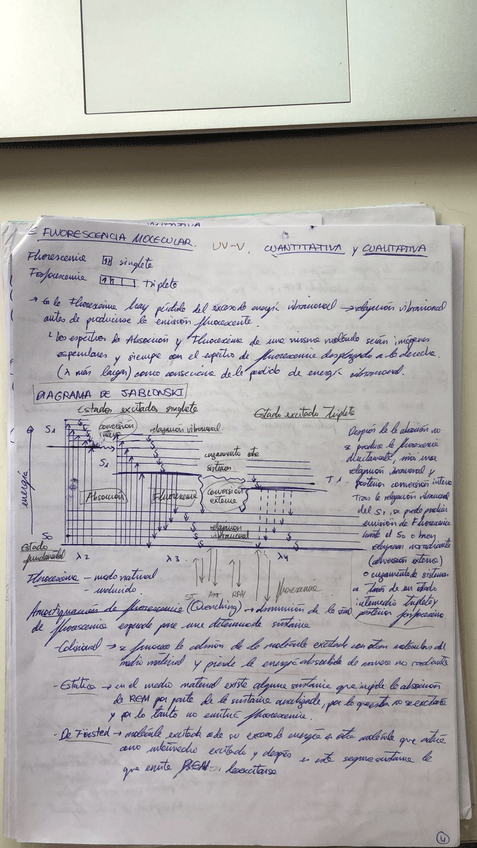 FLUORESCENCIA MOLECULAR. UV-V. CUANTITATIVA y CUALITATIVA
Fluorescencia singlete
Fosforescencia Tripleto
→ En la Fluorescencia hay pérdida del exceso de energía vibracional → relajación vibracional
antes de producirse la emisión fluorescente.
Los espectros de Absorción y Fluorescencia de una misma molécula serán imágenes
especulares y siempre con el espectro de fluorescencia desplazado a la derecha.
(λ más largas) como consecuencia de la pérdida de energía vibracional.
DIAGRAMA DE JABLONSKI
Estados excitados singlete
Estado excitado Triplete
conversión interna
relajación vibracional
S2
S1
cruzamiento entre sistemas
T1
energía
Absorción
Fluorescencia
Conversión externa
relajación vibracional
S0
Estado fundamental
λ2
λ3
λ4
Después de la absorción no
se produce la fluorescencia
directamente, sino una
relajación vibracional y
posterior conversión interna
Tras la relajación vibracional
del S1, se puede producir
emisión de Fluorescencia
hasta el S0 o hay
relajación no radiante
(conversión externa)
o cruzamiento de sistemas
a través de un estado
intermedio triplete y
posterior fosforescencia
Fluorescencia - modo natural
- inducido.
Amortiguación de fluorescencia (Quenching) → disminución de la señal
de fluorescencia esperada para una determinada sustancia
- Colisional → se favorece la colisión de la molécula excitada con otras moléculas del
medio material y pierde la energía absorbida de manera no radiante
- Estática → en el medio material existe alguna sustancia que impide la absorción
de REM por parte de la sustancia analizada, por lo que esta no se excitará
y por lo tanto no emitirá fluorescencia.
- De Försted → molécula excitada cede su exceso de energía a otra molécula que actúa
como intermedio excitado y después es esta segunda sustancia la
que emite REM
4